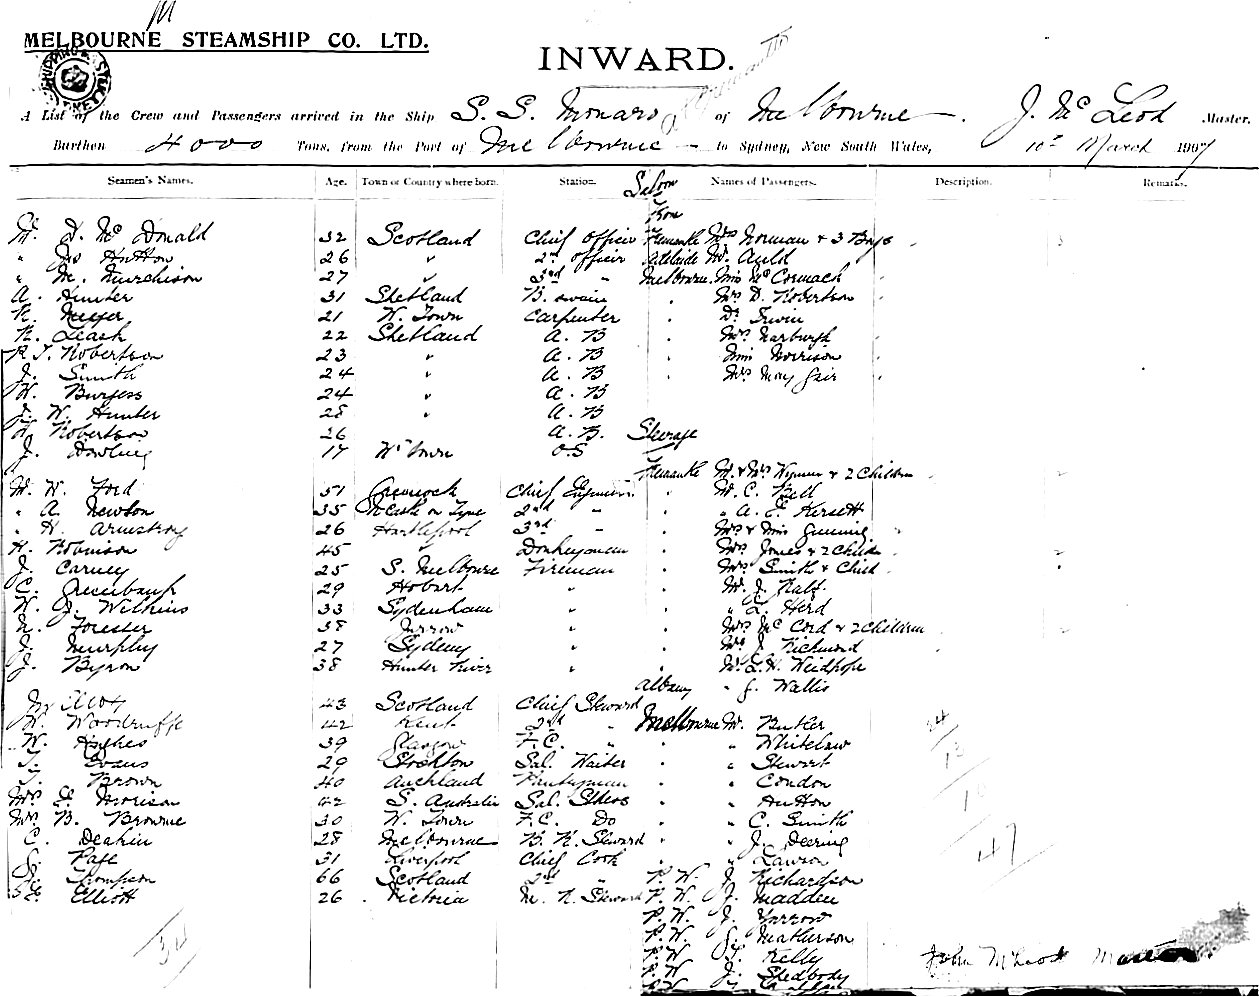 M
MELBOURNE STEAMSHIP CO. LTD.
INWARD.
A List of the Crew and Passengers arrived in the Ship S. S. Monaro of Melbourne J. McLeod Master,
Burthen 4000 Tons, from the Port of Melbourne to Sydney, New South Wales, 10th March 1907
Seamen's Names. Age. Town or Country where born. Station. Names of Passengers. Description. Remarks.
Saloon
From
Mr. D. McDonald 32 Scotland Chief Officer Fremantle Mrs Norman & 3 Boys
" Jas Hutton 26 " 2nd Officer Adelaide Mr. Auld
" M. Murchison 27 " 3rd " Melbourne Miss McCormack
A. Hunter 31 Shetland B. swain " Mrs D. Robertson
R. 21 W. Town Carpenter " Dr Irwin
R. Leask 22 Shetland A. B " Mrs Narburgh
R. J. Robertson 23 " A. B " Miss Morrison
J. Smith 24 " A. B " Mrs May Gair
W. Burgess 24 " A. B
J. W. Hunter 28 " A. B
Robertson 26 A. B. Steerage
J. Dowling 17 Wm Town O.S
Fremantle Mr & Mrs Wymer & 2 Children
Mr. W. Ford 51 Greenock Chief Engineer " Mr. C. Bell
" A. Newton 35 NCastle on Tyne 2nd " " " A. E. Kersett
" H. Armstrong 26 Hartlepool 3rd " " Mrs & Miss
H. Robinson 45 " Donkeyman " Mrs Jones & 2 Child
J. Carney 25 S. Melbourne Fireman " Mrs Smith & Child
C. Greenbaugh 29 Hobart " " Mr. J. Ralf
W. J. Wilkins 33 Sydenham " " L. Herd
Forester 38 Jarrow " " Mrs McCord & 2 Children
J. Murphy 27 Sydney " " Mr J. Richmond
J. Byron 38 Hunter River " " Mr. L. H. Weidhofe
Albany " J. Wallis
43 Scotland Chief Steward
W. Woodruffe 42 Kent 2nd " Melbourne Mr. Butler
W. Hughes 39 Glasgow F. C. " " " Whitelaw
Evans 29 Stockton Sal. Waiter " " Stewart
T. Brown 40 Auckland Pantryman " " Condon
Mrs E. Morison 42 S. Australia Sal. Stdess " " Hutton
Mrs B. Browne 30 W. Town F.C. Do " " C. Smith
C. Deakin 28 Melbourne B. R. Steward " " J. Deering
Page 31 Liverpool Chief Cook " " Lawson
Thompson 66 Scotland 2nd " P. W. J. Richardson
Elliott 26 Victoria M. R. Steward P. W. J. Madden
P. W. J. Yarrow
P. W. Matherson
P. W. Kelly
P. W J. Shedbody
34
34
13
47
John McLeod Master